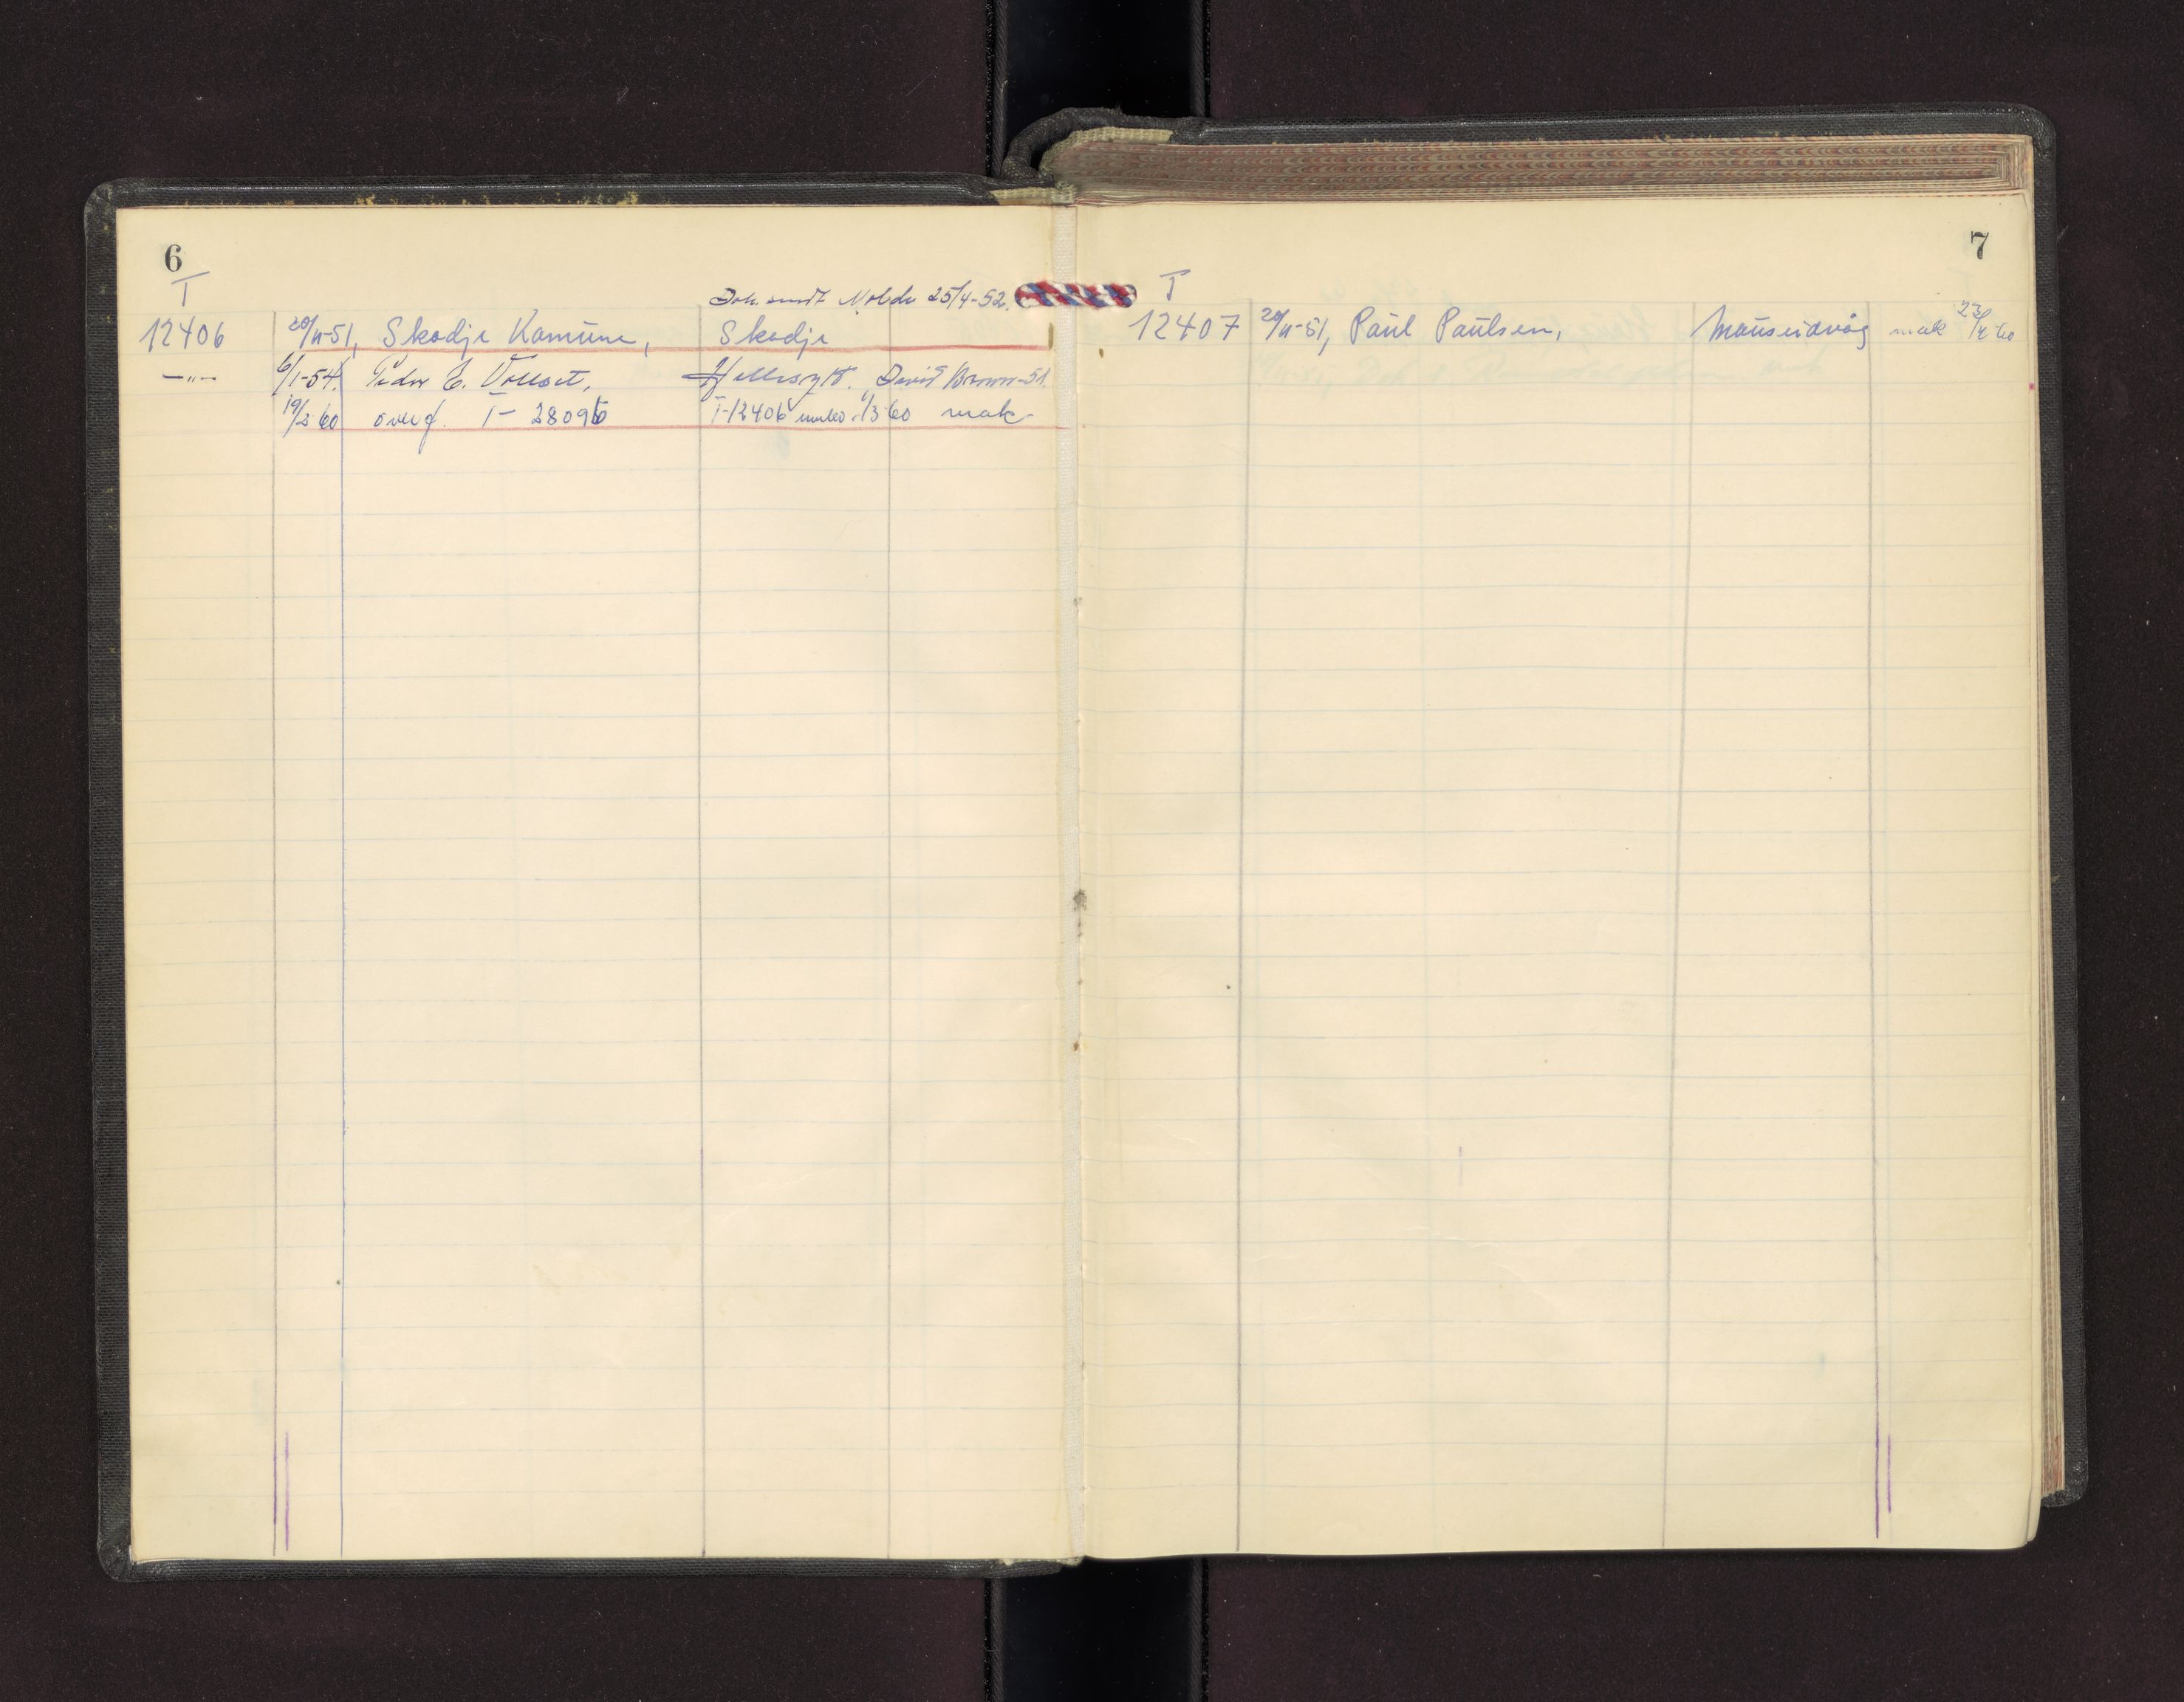 6
T
Dok. sendt Molde 25/4-52.
12406 20/11-51, Skodje Komune, Skodje
—"— 6/1-54. Peder E. Vollset, Hellesylt. David Brown-51.
19/2 60 overf. T- 28096 T-12406 1/3 60 mak
7
T
12407 20/11-51, Paul Paulsen, Mauseidvåg mak 23/4 60